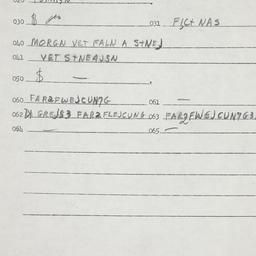 030 $ yes 031 FICT NAS
040 MORGN VET FALN A S+NEJ
041 VET S+NE4JSN
050 $ —
060 FARZFWEJCUN7G 061 —
062 DJ GREJS3 FARZFLEJCUNG 063 FARZFWEJCUN7G3
064 — 065 —